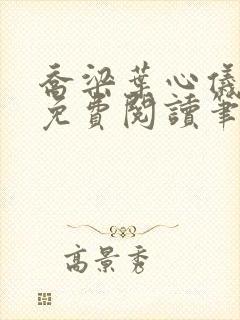 喬梁葉心儀
免費閱讀筆
高景秀